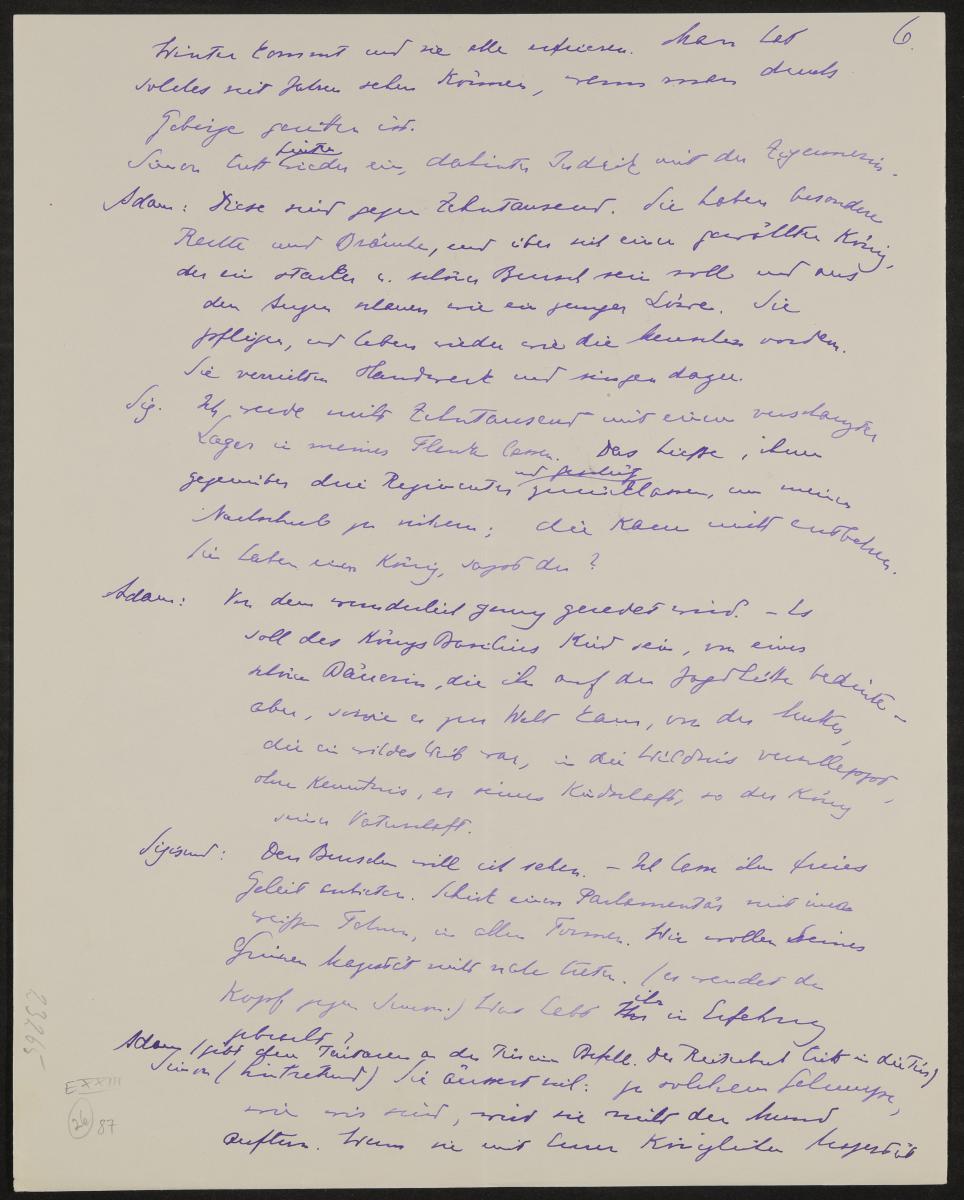 6.
Winter kommt und sie alle erfrieren. Man hat
solches seit Jahren sehen können, wenn man durchs
Gebirge geritten ist.
Simon tritt hinten wieder ein, dahinter Indrik mit der Zigeunerin.
Adam: Diese sind gegen Zehntausend. Sie haben besondere
Rechte und Bräuche, und über sich einen gewählten König,
der ein starker u. schöner Bursch sein soll und aus
den Augen schauen wie ein junger Löwe. Sie
pflügen, und leben wieder wie die Menschen vordem.
Sie verrichten Handwerk und singen dazu.
Sig. Ich werde nicht Zehntausend mit einem verschanzten
Lager in meiner Flanke lassen. Das hiesse, ihnen
gegenüber drei Regimenter und Geschütz zurücklassen, um meinen
Nachschub zu sichern; die kann nicht entbehren.
Sie haben einen König, sagst du?
Adam: Von dem wunderlich genug geredet wird. – Es
soll des Königs Basilius Kind sein, von einer
schönen Bäuerin, die ihn auf der Jagdhütte bediente –
aber, sowie es zur Welt kam, von der Mutter,
die ein wildes Weib war, in die Wildnis verschleppt,
ohne Kenntnis, er seiner Kindschaft, so der König
seiner Vaterschaft.
Sigismund: Den Burschen will ich sehen. – Ich lasse ihm freies
Geleit anbieten. Schick einen Parlamentär mit einer
weissen Fahne, in allen Formen. Wir wollen Seiner
Grünen Majestät nicht nahe treten. (er wendet den
Kopf gegen Simon:) Was habt ihr in Erfahrung
gebracht?
Adam (gibt dem Tartaren an der Tür einen Befehl. Der Reitershut tritt in die Tür)
Simon (hintretend) Sie äussert sich: zu solchem Gelumpe,
wie wir sind, wird sie nicht den Mund
auftun. Wenn sie mit Euer Königlichen Majestät
23265
EXXIII
26
87